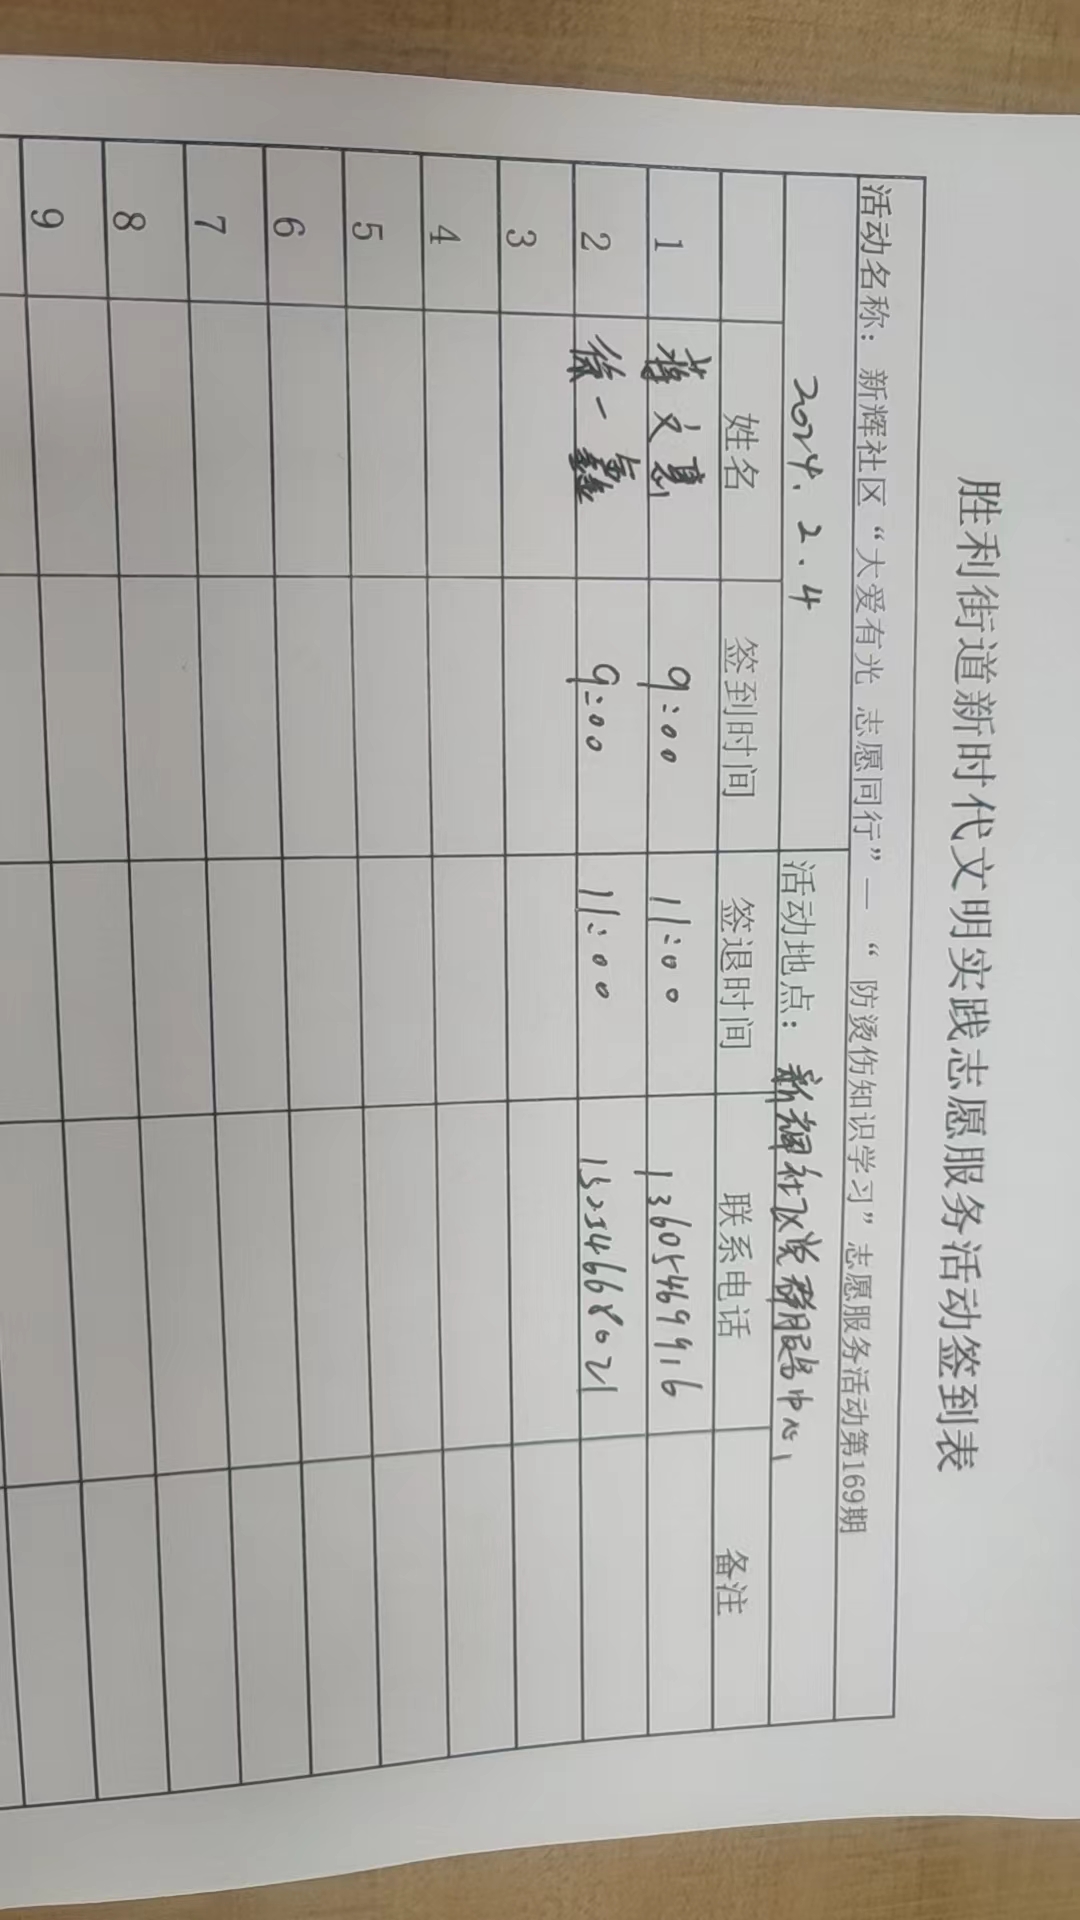 胜利街道新时代文明实践志愿服务活动签到表
活动名称：新辉社区“大爱有光 志愿同行”—“防烫伤知识学习”志愿服务活动第169期
2024.2.4 活动地点：新辉社区党群服务中心
姓名 签到时间 签退时间 联系电话 备注
1 文惠 9:00 11:00 13605469916
2 徐一鑫 9:00 11:00 15254668021
3
4
5
6
7
8
9